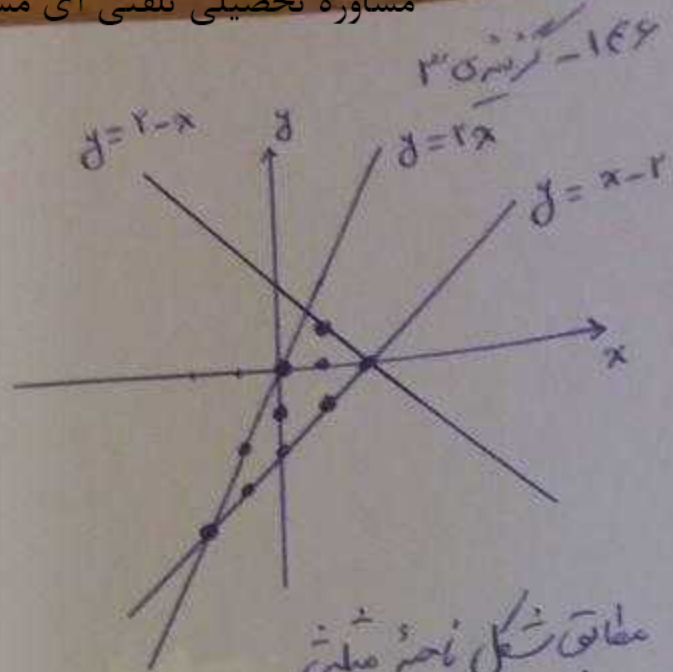 مشاوره تحصیلی تلفنی آی مش
۱۴۶ - گزینه ۳
y = ۲ - x
y
y = ۲x
y = x - ۲
x
مطابق شکل ناحیهٔ مثلث